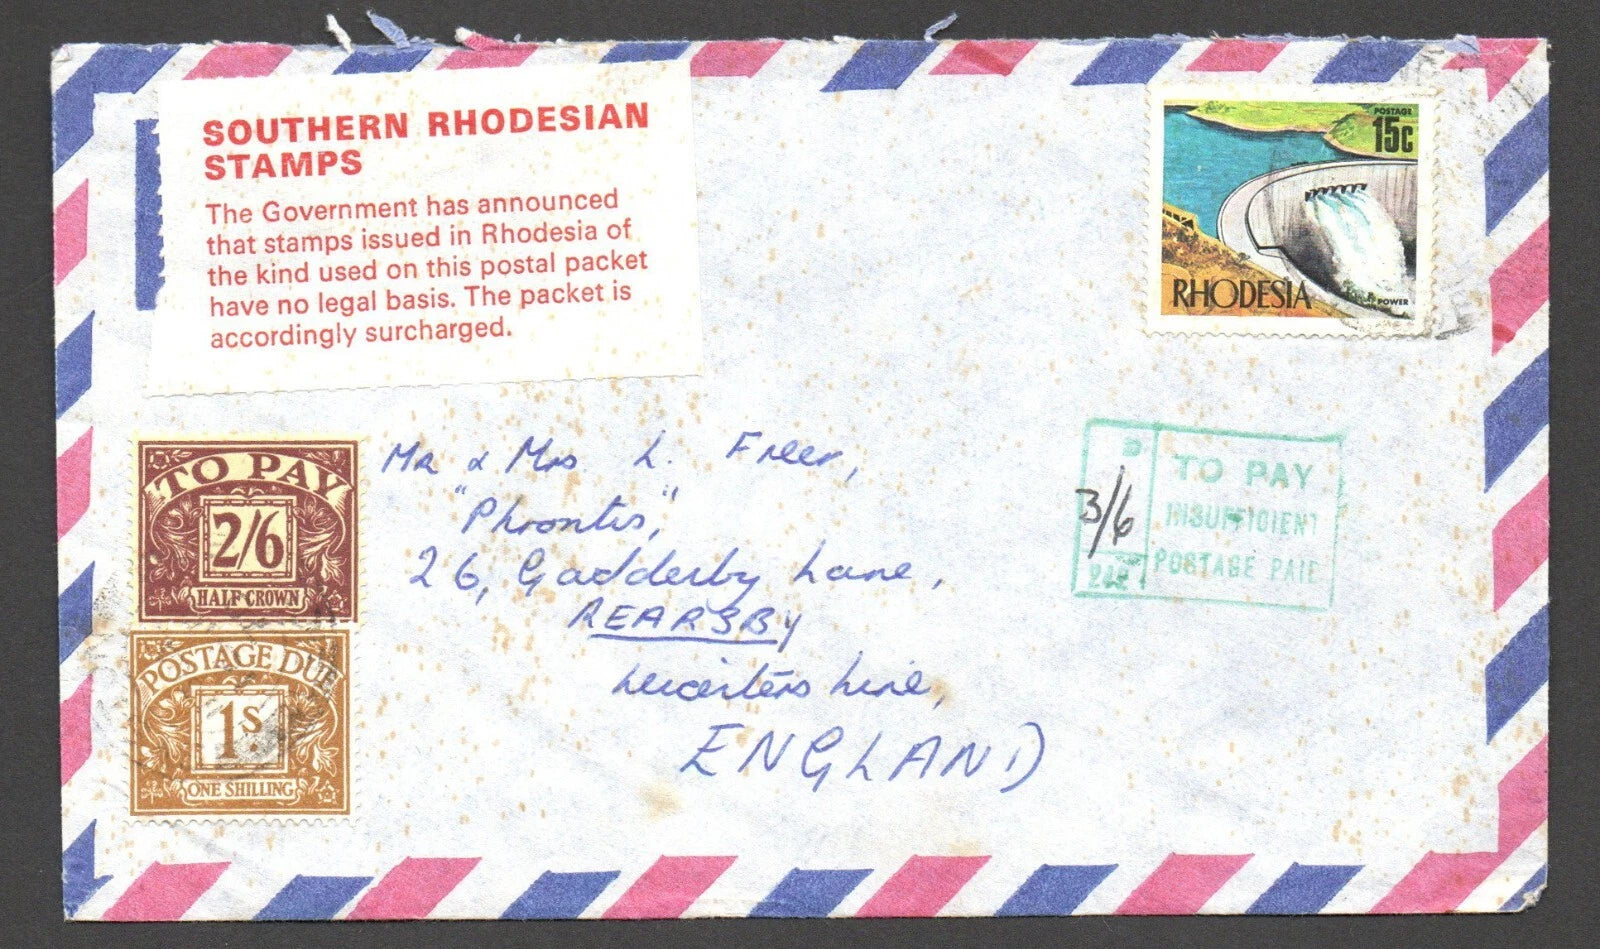 SOUTHERN RHODESIAN
STAMPS
The Government has announced
that stamps issued in Rhodesia of
the kind used on this postal packet
have no legal basis. The packet is
accordingly surcharged.
POSTAGE
15c
RHODESIA
POWER
TO PAY
2/6
HALF-CROWN
POSTAGE DUE
1s.
ONE SHILLING
Mr & Mrs L. Freer,
"Phrontis,"
26, Gadderby Lane,
REARSBY
Leicestershire,
ENGLAND
D
3/6
TO PAY
INSUFFICIENT
POSTAGE PAID